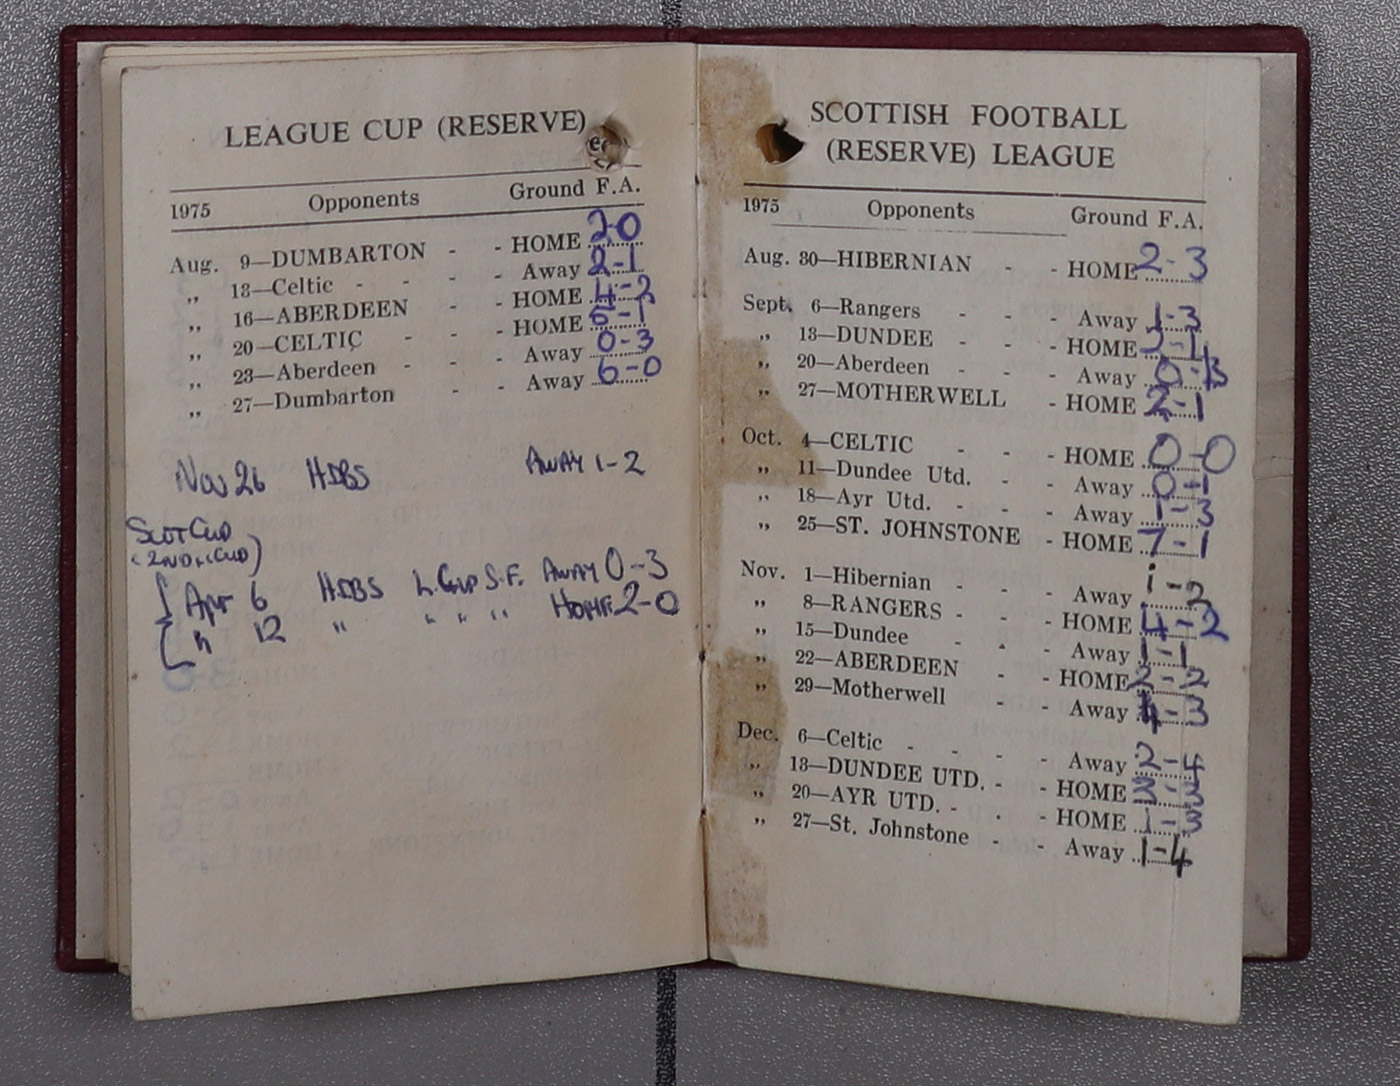 LEAGUE CUP (RESERVE)
1975 Opponents Ground F.A.
Aug. 9—DUMBARTON - - HOME 2-0
„ 13—Celtic - - - - Away 2-1
„ 16—ABERDEEN - - HOME 4-2
„ 20—CELTIC - - HOME 5-1
„ 23—Aberdeen - - Away 0-3
„ 27—Dumbarton - - Away 6-0
Nov 26 HIBS AWAY 1-2
SCOT CUP
(2ND XI CUP)
Apr 6 HIBS L. CUP S.F. AWAY 0-3
" 12 " " " " HOME 2-0
SCOTTISH FOOTBALL
(RESERVE) LEAGUE
1975 Opponents Ground F.A.
Aug. 30—HIBERNIAN - - HOME 2-3
Sept. 6—Rangers - - - Away 1-3
„ 13—DUNDEE - - - HOME
„ 20—Aberdeen - - - Away
„ 27—MOTHERWELL - HOME 2-1
Oct. 4—CELTIC - - - HOME 0-0
„ 11—Dundee Utd. - - Away 0-1
„ 18—Ayr Utd. - - - Away 1-3
„ 25—ST. JOHNSTONE - HOME 7-1
Nov. 1—Hibernian - - - Away 1-2
„ 8—RANGERS - - - HOME 4-2
„ 15—Dundee - - - Away 1-1
„ 22—ABERDEEN - - HOME 2-2
„ 29—Motherwell - - Away 4-3
Dec. 6—Celtic - - - - Away 2-4
„ 13—DUNDEE UTD. - - HOME 3-3
„ 20—AYR UTD. - - - HOME 1-3
„ 27—St. Johnstone - - Away 1-4